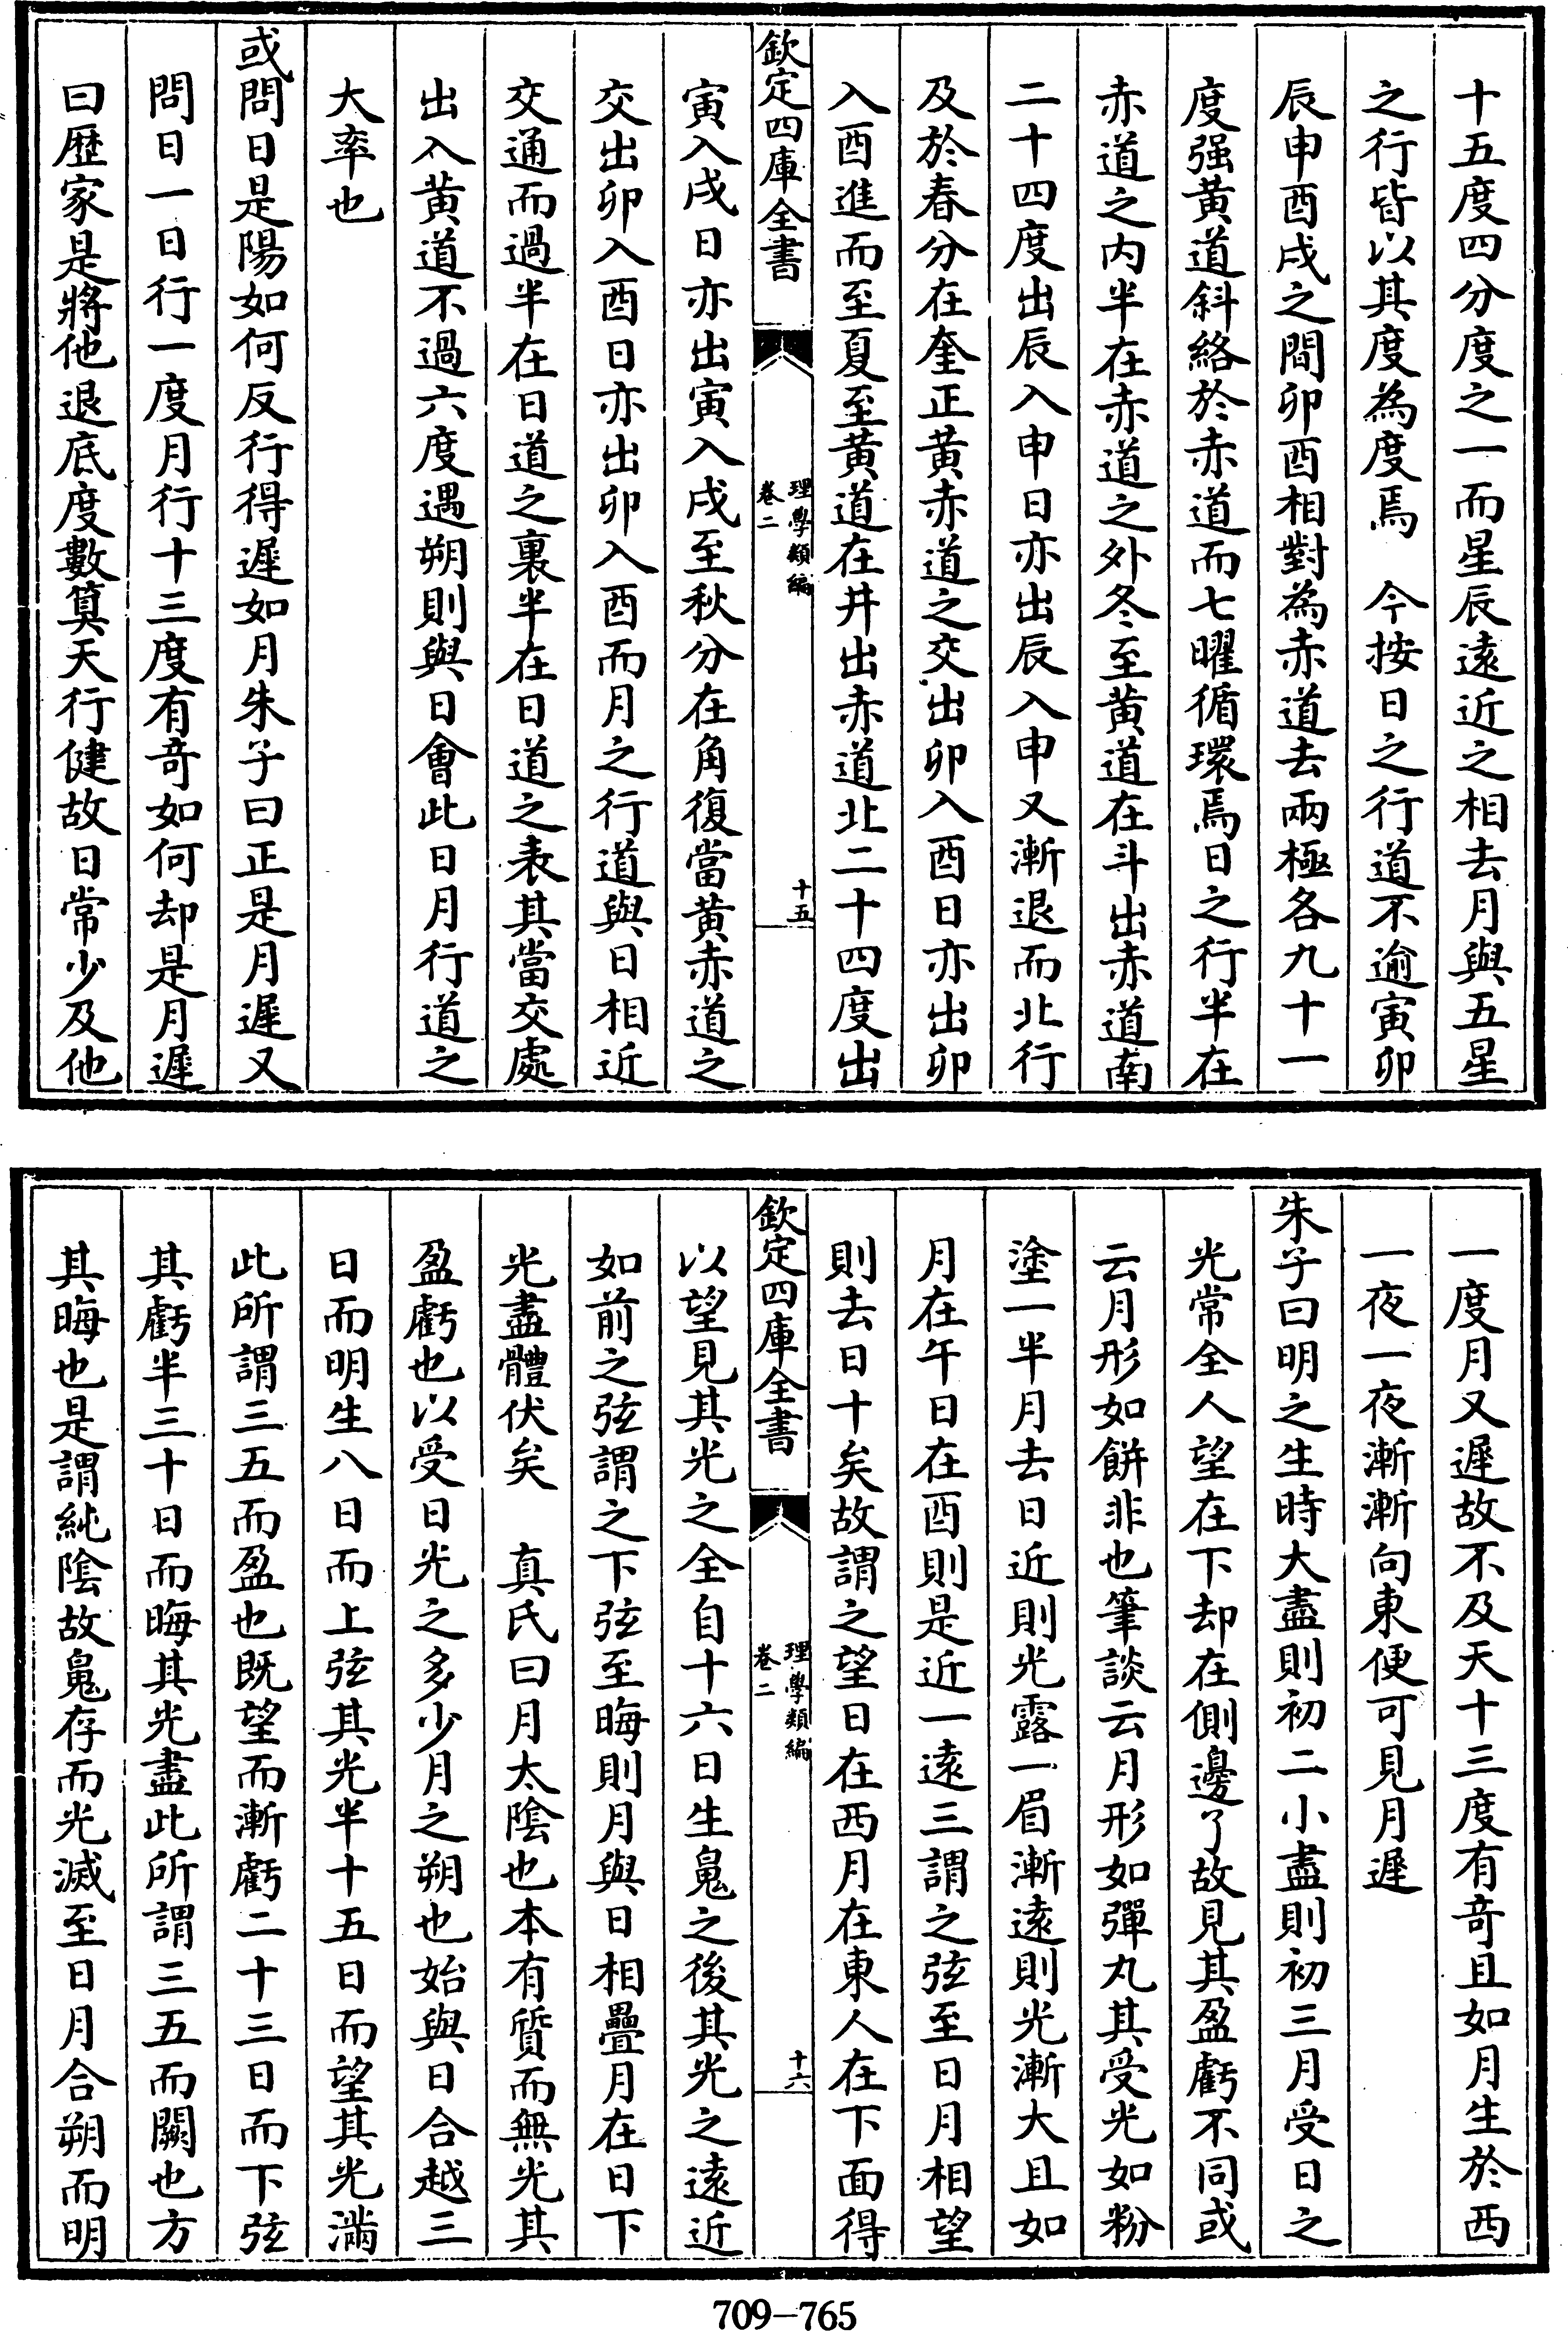 十五度四分度之一而星辰遠近之相去月與五星
之行皆以其度為度焉　今按日之行道不逾寅卯
辰申酉戌之間卯酉相對為赤道去兩極各九十一
度强黄道斜絡於赤道而七曜循環焉日之行半在
赤道之内半在赤道之外冬至黄道在斗出赤道南
二十四度出辰入申日亦出辰入申又漸退而北行
及於春分在奎正黄赤道之交出卯入酉日亦出卯
入酉進而至夏至黄道在井出赤道北二十四度出
欽定四庫全書
理學類編
卷二
十五
寅入戌日亦出寅入戌至秋分在角復當黄赤道之
交出卯入酉日亦出卯入酉而月之行道與日相近
交通而過半在日道之裏半在日道之表其當交處
出入黄道不過六度遇朔則與日會此日月行道之
大率也
或問日是陽如何反行得遲如月朱子曰正是月遲又
問日一日行一度月行十三度有竒如何却是月遲
曰歴家是將他退底度數算天行健故日常少及他
一度月又遲故不及天十三度有竒且如月生於西
一夜一夜漸漸向東便可見月遲
朱子曰明之生時大盡則初二小盡則初三月受日之
光常全人望在下却在側邊了故見其盈虧不同或
云月形如餅非也筆談云月形如彈丸其受光如粉
塗一半月去日近則光露一眉漸遠則光漸大且如
月在午日在酉則是近一遠三謂之弦至日月相望
則去日十矣故謂之望日在西月在東人在下面得
欽定四庫全書
理學類編
卷二
十六
以望見其光之全自十六日生魄之後其光之遠近
如前之弦謂之下弦至晦則月與日相疊月在日下
光盡體伏矣　真氏曰月太陰也本有質而無光其
盈虧也以受日光之多少月之朔也始與日合越三
日而明生八日而上弦其光半十五日而望其光滿
此所謂三五而盈也既望而漸虧二十三日而下弦
其虧半三十日而晦其光盡此所謂三五而闕也方
其晦也是謂純陰故魄存而光滅至日月合朔而明
709—765